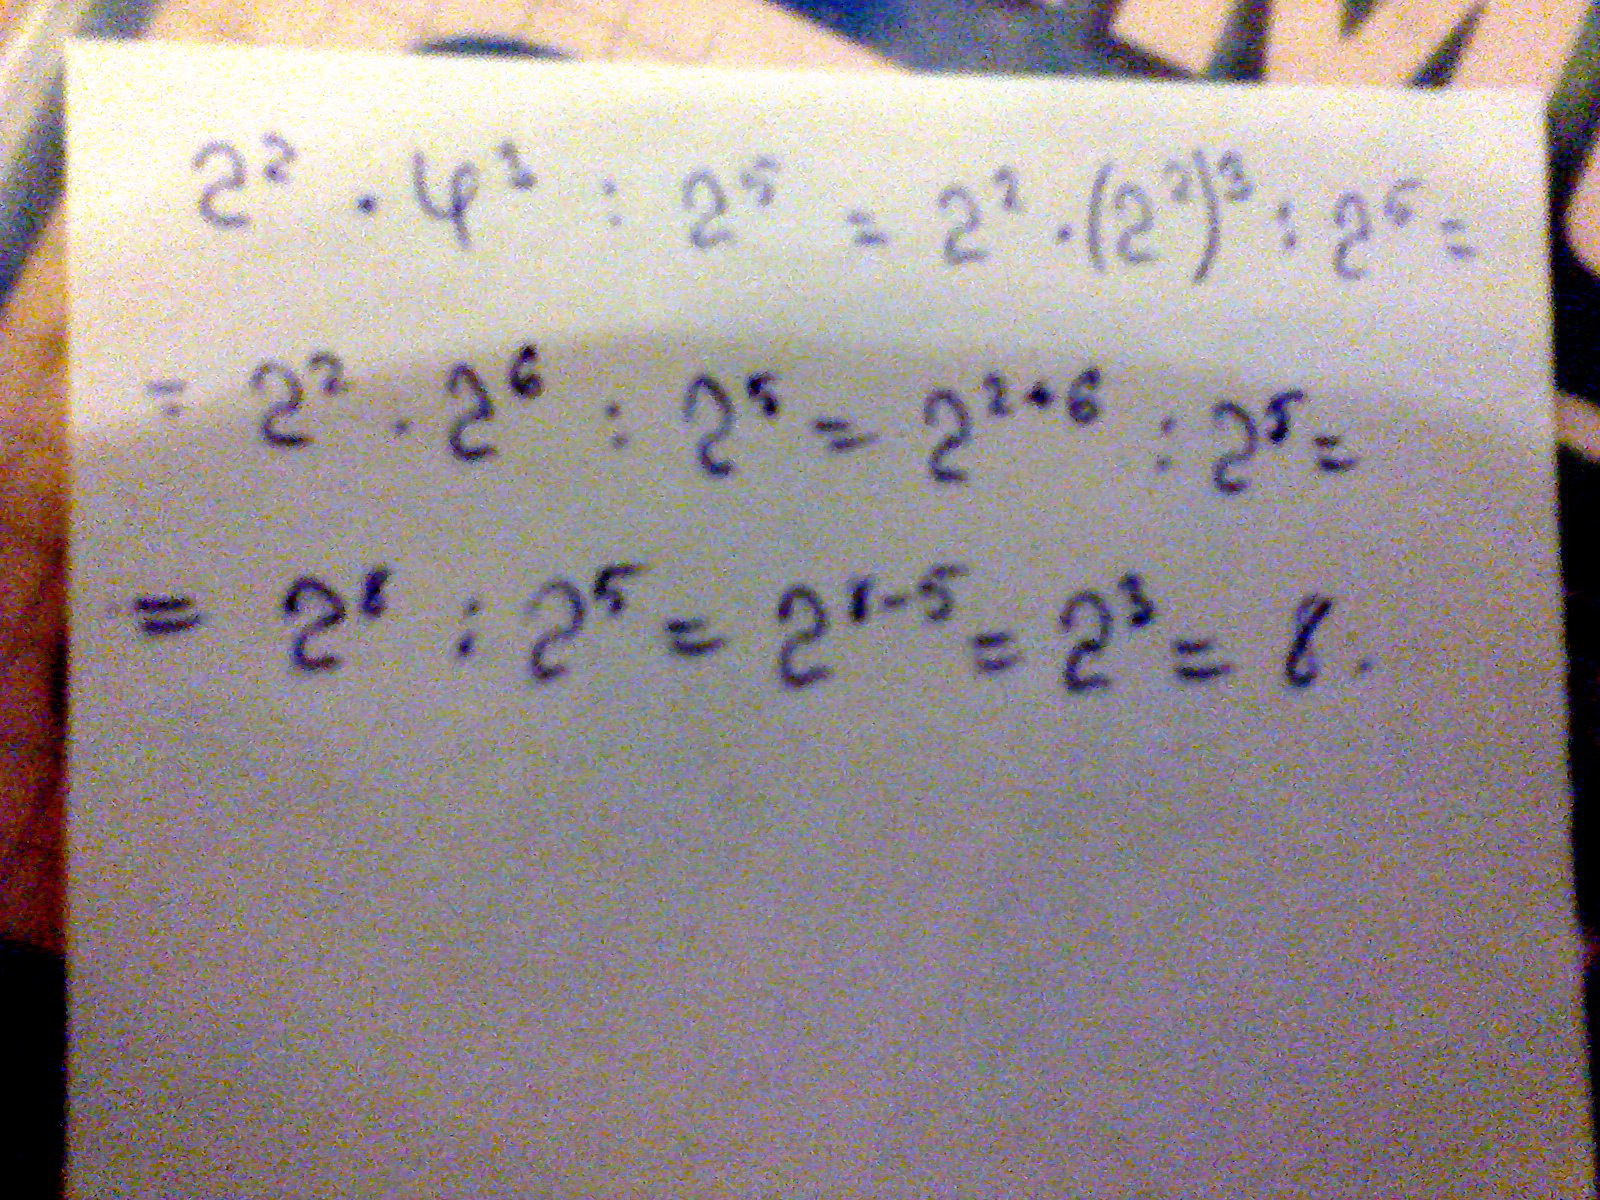 2² · 4³ : 2⁵ = 2² · (2²)³ : 2⁵ =
= 2² · 2⁶ : 2⁵ = 2²⁺⁶ : 2⁵ =
= 2⁸ : 2⁵ = 2⁸⁻⁵ = 2³ = 8.